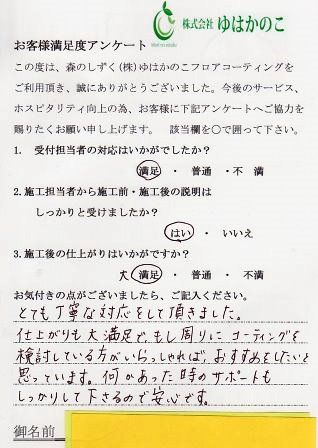 株式会社 ゆはかのこ
お客様満足度アンケート
この度は、森のしずく(株)ゆはかのこフロアコーティングを
ご利用頂き、誠にありがとうございました。今後のサービス、
ホスピタリティ向上の為、お客様に下記アンケートへご協力を
賜りたくお願い申し上げます。 該当欄を〇で囲って下さい。
1. 受付担当者の対応はいかがでしたか?
満足 ・ 普通 ・ 不 満
2. 施工担当者から施工前・施工後の説明は
しっかりと受けましたか?
はい ・ いいえ
3. 施工後の仕上がりはいかがですか?
大 満足 ・ 普通 ・ 不満
お気付きの点がございましたら、ご記入ください。
とても丁寧な対応をして頂きました。
仕上がりも大満足で、もし周りに コーティングを
検討している方がいらっしゃれば、おすすめをしたいと
思っています。何かあった時のサポートも
しっかりして下さるので安心です。
御名前